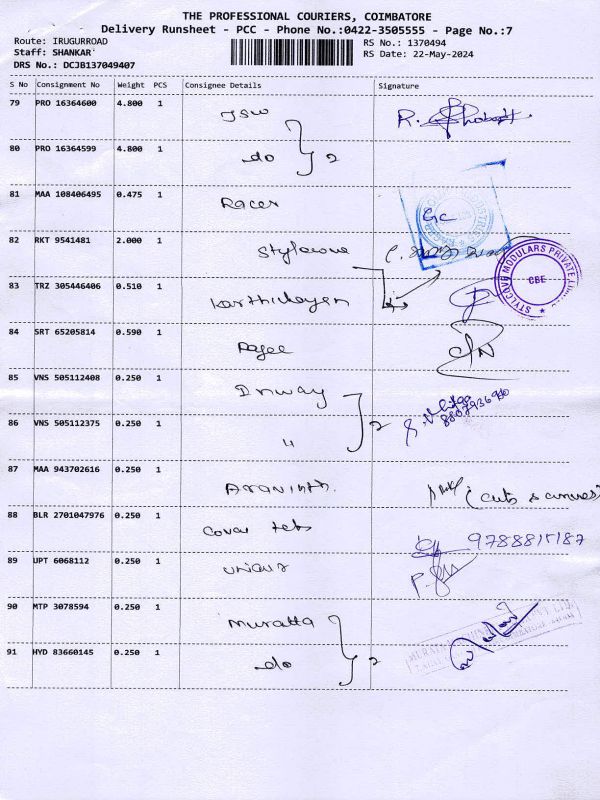 THE PROFESSIONAL COURIERS, COIMBATORE
Delivery Runsheet - PCC - Phone No.:0422-3505555 - Page No.:7
Route: IRUGURROAD
Staff: SHANKAR
DRS No.: DCJB137049407
RS No.: 1370494
RS Date: 22-May-2024
S No Consignment No Weight PCS Consignee Details Signature
79 PRO 16364600 4.800 1 JSW
80 PRO 16364599 4.800 1 do 2
81 MAA 108406495 0.475 1 Racer GC
82 RKT 9541481 2.000 1 Stylecove
STYLCOVE MODULARS PRIVATE
CBE
83 TRZ 305446406 0.510 1 Karthikeyen
84 SRT 65205814 0.590 1
85 VNS 505112408 0.250 1
86 VNS 505112375 0.250 1 " 2
87 MAA 943702616 0.250 1 Aravinth.
88 BLR 2701047976 0.250 1 9788815187
89 UPT 6068112 0.250 1
90 MTP 3078594 0.250 1 Muratta
91 HYD 83660145 0.250 1 do 2